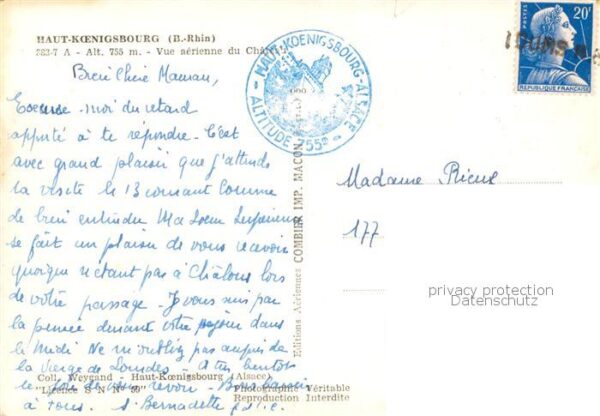 HAUT-KŒNIGSBOURG (B.-Rhin)
383-7 A - Alt. 755 m. - Vue aérienne du Château
Bien Chère Maman,
Excuse-moi du retard
apporté à te répondre. C'est
avec grand plaisir que j'attends
la visite le 13 courant Comme
de bien entendu Ma Soeur Supérieure
se fait un plaisir de vous recevoir
quoique n'étant pas à Châlons lors
de votre passage - Je vous suis par
la pensée durant votre séjour dans
le Midi Ne m'oubliez pas auprès de
la Vierge de Lourdes - A très bientôt
le de vous revoir - Bons baisers
à tous. S. Bernadette
Coll. Weygand - Haut-Kœnigsbourg (Alsace)
"Licence S N N° 69"
Photographie Véritable
Reproduction Interdite
Editions Aériennes COMBIER IMP. MACON
- HAUT-KOENIGSBOURG-ALSACE -
ALTITUDE 755m
20F
POSTES
REPUBLIQUE FRANÇAISE
Madame Rieux
177
privacy protection
Datenschutz